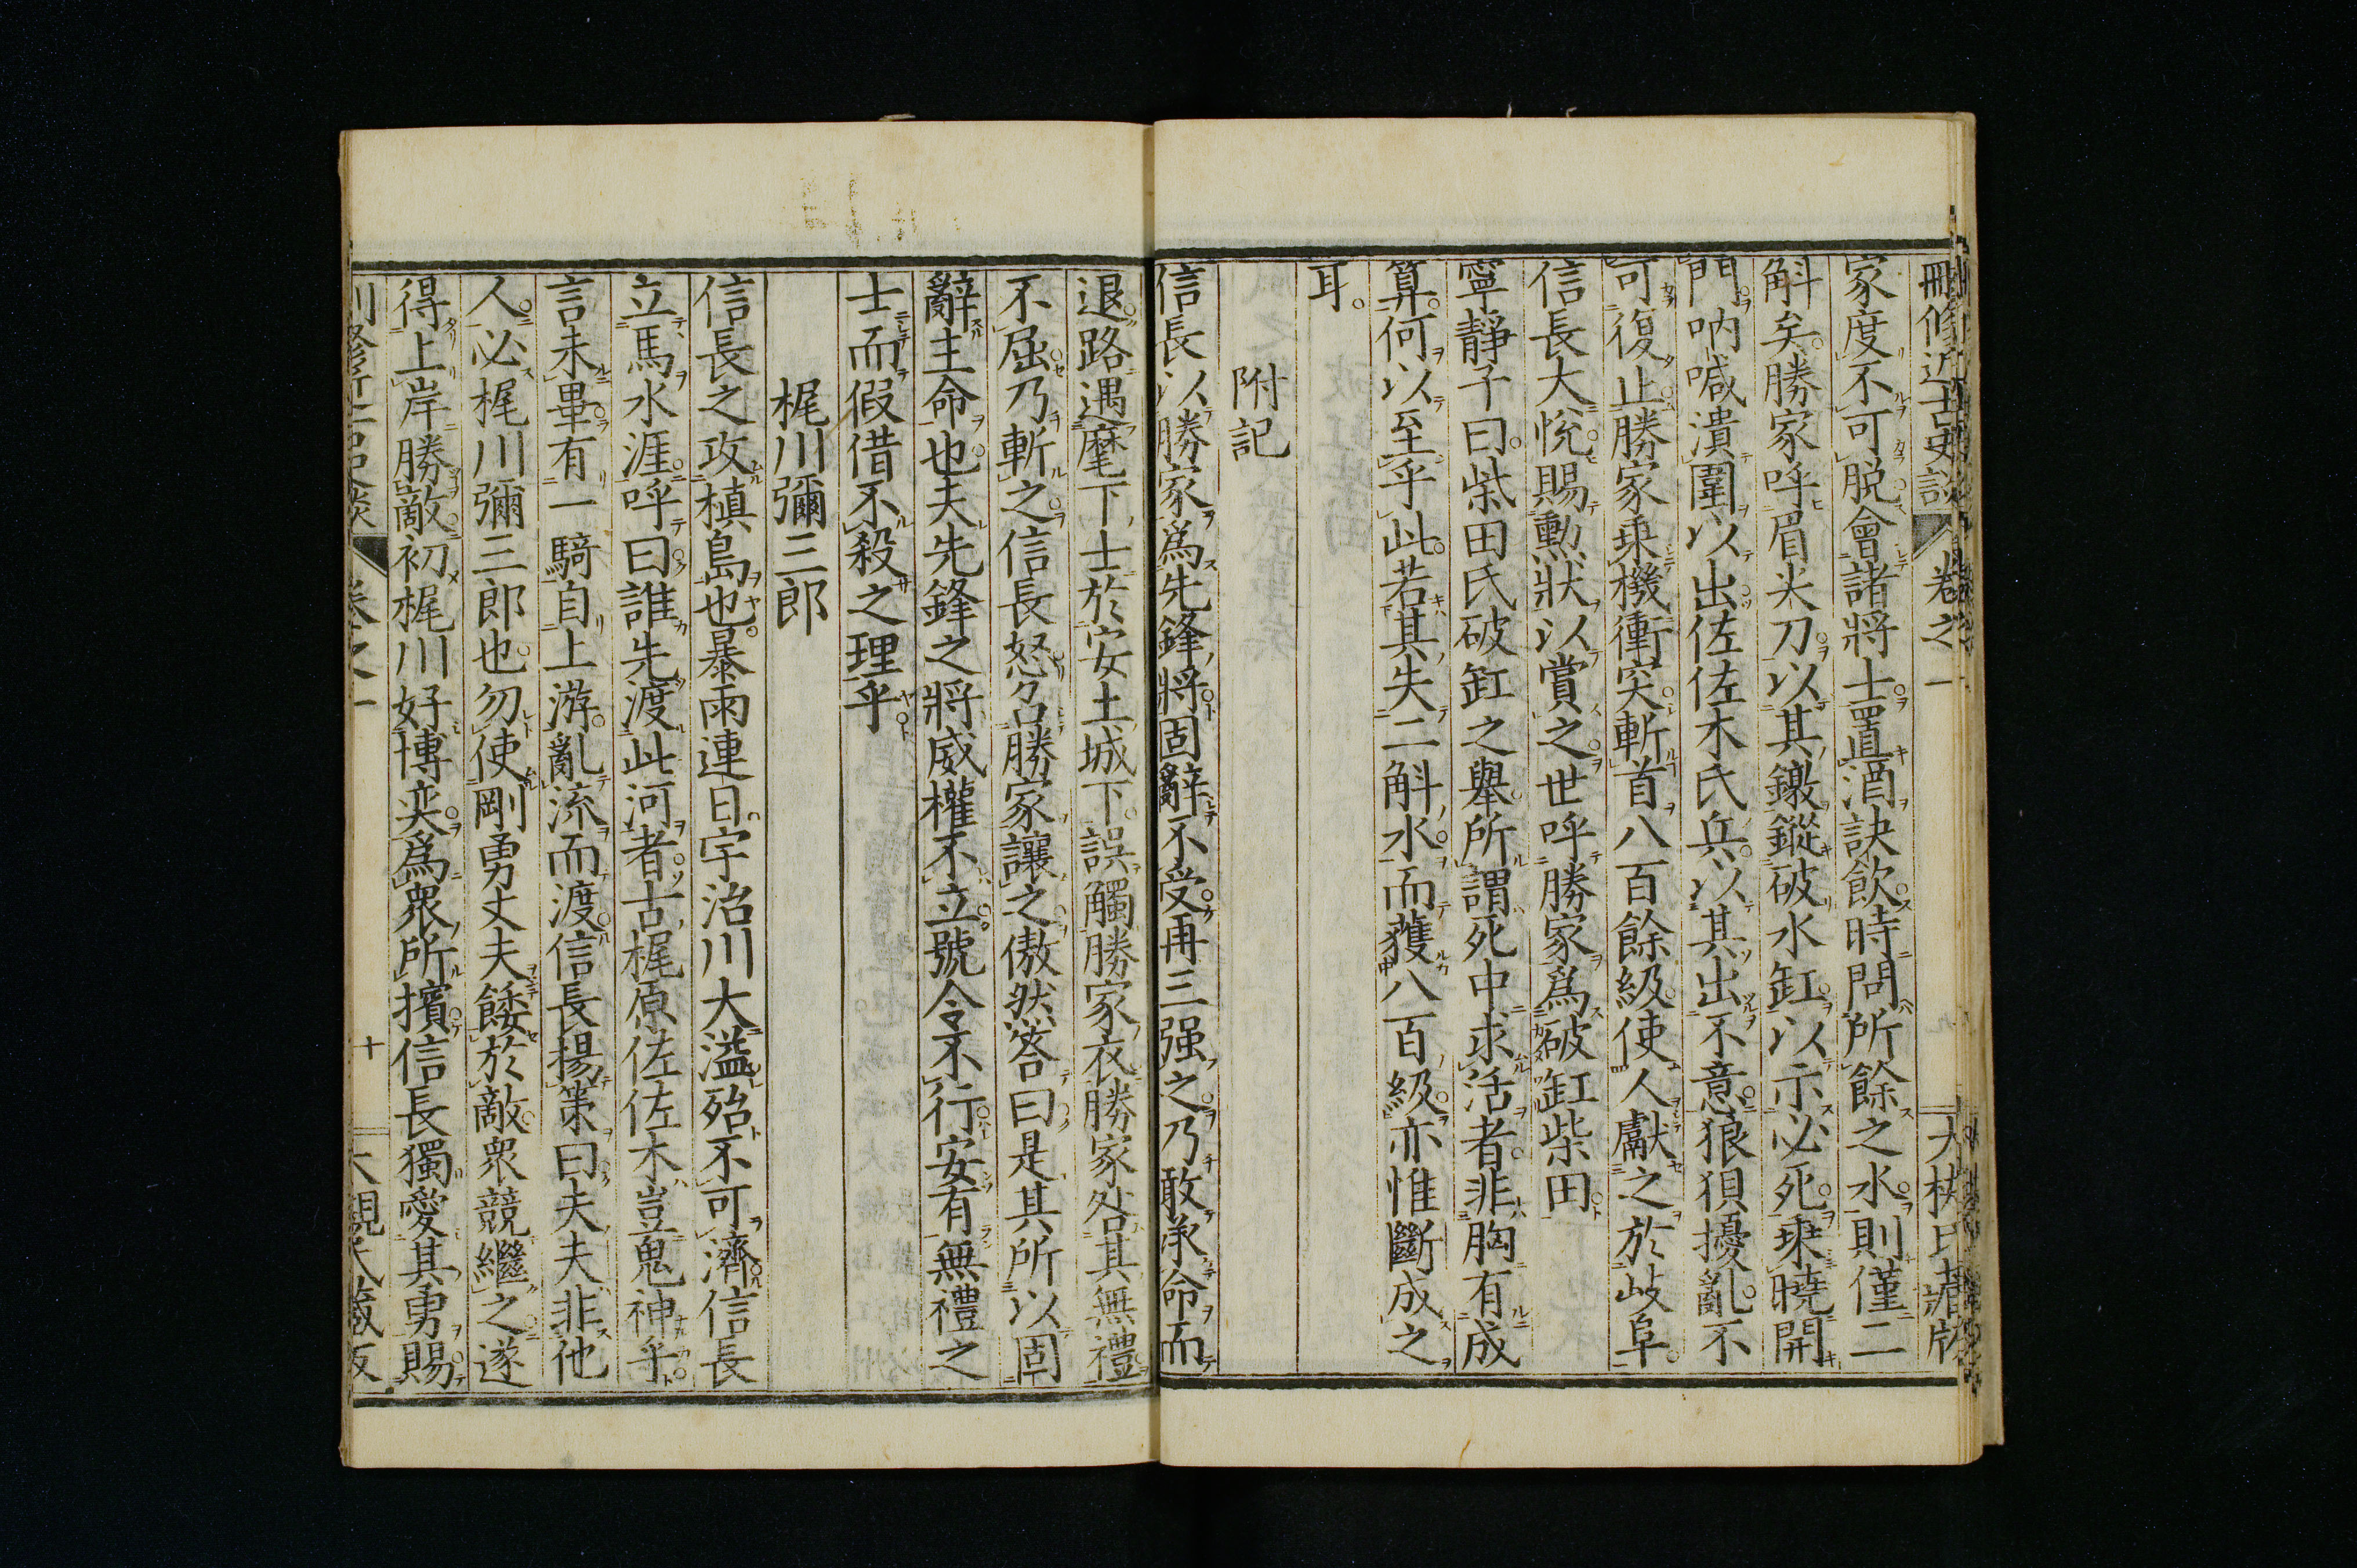 刪修近古史談 卷之一 大槻氏藏版
家度不可脱會諸將士置酒訣飲時問所餘之水則僅二
斛矣勝家呼眉尖刀以其鐓鏦破水缸以示必死乘曉開
門吶喊潰圍以出佐佐木氏兵以其出不意狼狽擾亂不
可復止勝家乘機衝突斬首八百餘級使人獻之於岐阜
信長大悅賜勳狀以賞之世呼勝家爲破缸柴田
寧靜子曰柴田氏破缸之舉所謂死中求活者非胸有成
算何以至乎此若其失二斛水而獲八百級亦惟斷成之
耳
附記
信長以勝家爲先鋒將固辭不受再三强之乃敢承命而
退路遇麾下士於安土城下誤觸勝家衣勝家咎其無禮
不屈乃斬之信長怒召勝家讓之傲然答曰是其所以固
辭主命也夫先鋒之將威權不立號令不行安有無禮之
士而假借不殺之理乎
梶川彌三郎
信長之攻槙島也暴雨連日宇治川大溢殆不可濟信長
立馬水涯呼曰誰先渡此河者古梶原佐佐木豈鬼神乎
言未畢有一騎自上游亂流而渡信長揚策曰夫夫非他
人必梶川彌三郎也勿使剛勇丈夫餧於敵衆競繼之遂
得上岸勝敵初梶川好博奕爲衆所擯信長獨愛其勇賜
卷之一 十 大槻氏藏版